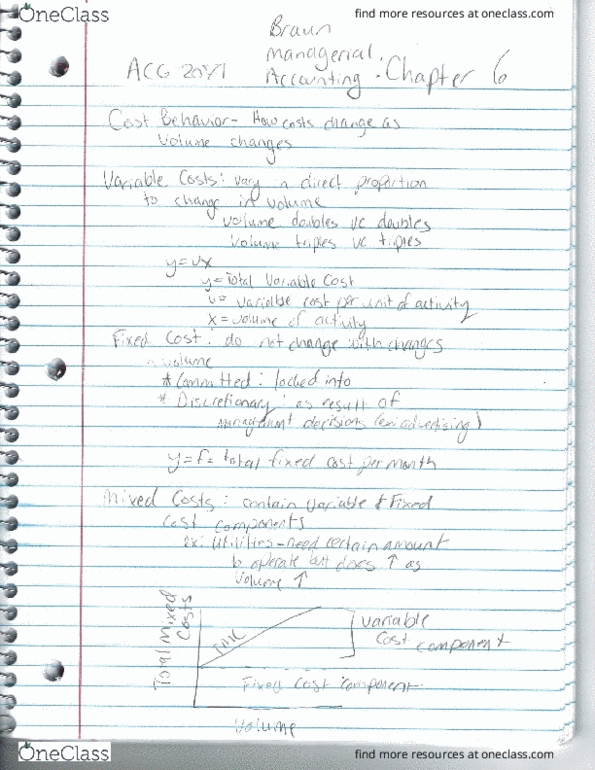 OneClass
find more resources at oneclass.com
Braun
Managerial
ACG 2071 Accounting · Chapter 6
Cost Behavior - How costs change as
Volume changes
Variable Costs: vary in direct proportion
to change in volume
volume doubles vc doubles
volume triples vc triples
y=vx
y=Total Variable Cost
v= variable cost per unit of activity
x = volume of activity
Fixed Cost: do not change with changes
n volume
* Committed: locked into
* Discretionary: as result of
management decisions (ex: advertising)
y=f= total fixed cost per month
Mixed Costs: contain variable & Fixed
cost components
ex: utilities - need certain amount
to operate but does ↑ as
volume ↑
Total Mixed
Costs
TMC
variable
cost component
Fixed cost component
Volume
OneClass
find more resources at oneclass.com